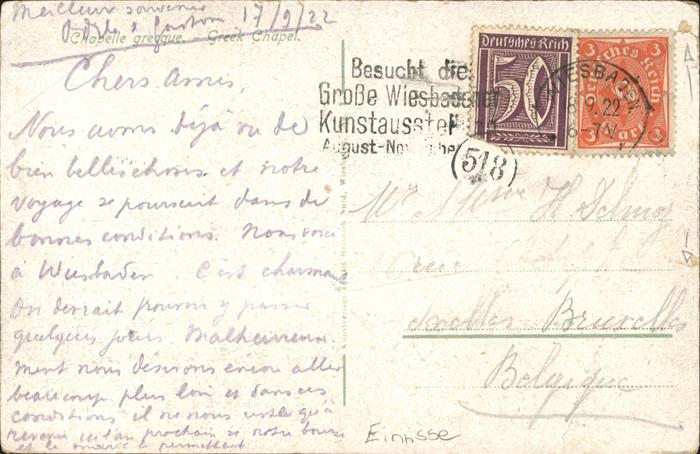 Meilleur souvenir 17/9/22
Chapelle grecque. Greek Chapel.
Chers amis,
Nous avons déjà vu de
bien belles choses et notre
voyage se poursuit dans de
bonnes conditions. Nous voici
à Wiesbaden. C'est charmant
On devrait pouvoir y passer
quelques jours. Malheureuse-
ment nous devons encore aller
beaucoup plus loin et dans ces
conditions il ne nous reste qu'à
revenir l'an prochain si notre bourse
et le permettent
Besucht die
Große Wiesbadener
Kunstausstel
August-November
518
Deutsches Reich
50
3 3
Deutsches Reich
3 Mark 3
WIESBADEN
8.9.22
6-7N
Mr H.
Ixelles Bruxelles
Belgique
Einnsse